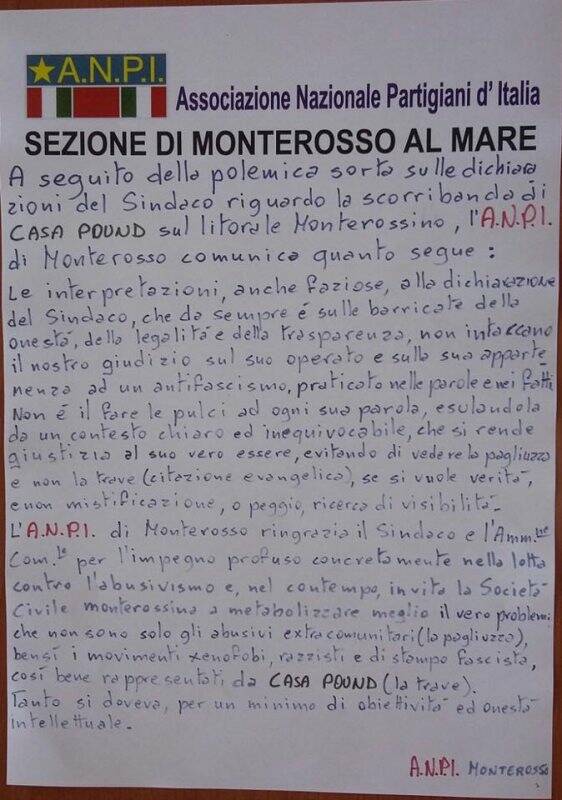 ★A.N.P.I.
Associazione Nazionale Partigiani d'Italia
SEZIONE DI MONTEROSSO AL MARE
A seguito della polemica sorta sulle dichiara
zioni del Sindaco riguardo la scorribanda di
CASA POUND sul litorale Monterossino, l'A.N.P.I.
di Monterosso comunica quanto segue:
Le interpretazioni, anche faziose, alla dichiarazione
del Sindaco, che da sempre é sulle barricate della
onestá, della legalitá e della trasparenza, non intaccano
il nostro giudizio sul suo operato e sulla sua apparte
nenza ad un antifascismo, praticato nelle parole e nei fatti
Non é il fare le pulci ad ogni sua parola, esulandola
da un contesto chiaro ed inequivocabile, che si rende
giustizia al suo vero essere, evitando di vedere la pagliuzza
e non la trave (citazione evangelica), se si vuole veritá,
e non mistificazione, o peggio, ricerca di visibilitá.
L'A.N.P.I. di Monterosso ringrazia il Sindaco e l'Amm.ne
Com.le per l'impegno profuso concretamente nella lotta
contro l'abusivismo e, nel contempo, invita la Societá
Civile monterossina a metabolizzare meglio il vero problema
che non sono solo gli abusivi extracomunitari (la pagliuzza),
bensí i movimenti xenofobi, razzisti e di stampo fascista,
cosí bene rappresentati da CASA POUND (la trave).
Tanto si doveva, per un minimo di obiettivitá ed onestá
intellettuale.
A.N.P.I. MONTEROSSO